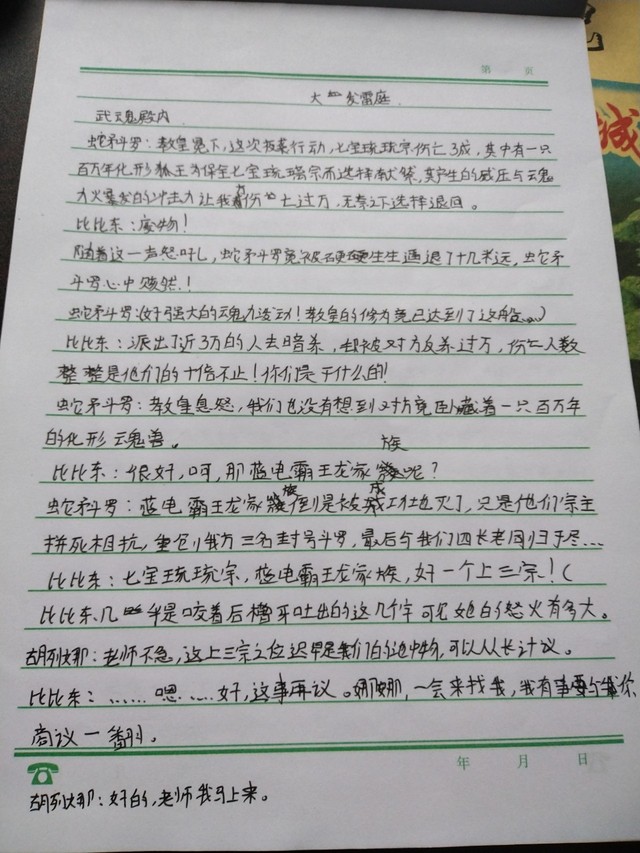 第 页
大发雷庭
武魂殿内
蛇矛斗罗：教皇冕下，这次猎杀行动，七宝琉琉宗伤亡3成，其中有一只
百万年化形狐王为保全七宝琉璃宗而选择献祭，其产生的威压与云魂
力火暴发的冲击力让我方伤亡过万，无奈之下选择退回。
比比东：废物！
随着这一声怒吼，蛇矛斗罗竟被硬生生逼退了十几米远，蛇矛
斗罗心中骇然！
蛇矛斗罗：（好强大的云魂力波动！教皇的修为竟已达到了这般……）
比比东：派出了近3万的人去暗杀，却被对方反杀过万，伤亡人数
整整是他们的十倍不止！你们是干什么的！
蛇矛斗罗：教皇息怒，我们也没有想到对方竟卧藏着一只百万年
的化形云魂兽。
比比东：很好，呵，那蓝电霸王龙家族呢？
蛇矛斗罗：蓝电霸王龙家族倒是被成功灭了，只是他们宗主
拼死相抗，重创我方三名封号斗罗，最后与我们四长老同归于尽…
比比东：七宝琉琉宗，蓝电霸王龙家族，好一个上三宗！（
比比东几乎是咬着后槽牙吐出的这几个字可见她的怒火有多大。
胡列娜：老师不急，这上三宗之位迟早是我们的池中物，可以从长计议。
比比东：……嗯……好，这事再议。娜娜，一会来找我，我有事要与你
商议一番。
年 月 日
胡列娜：好的，老师我马上来。